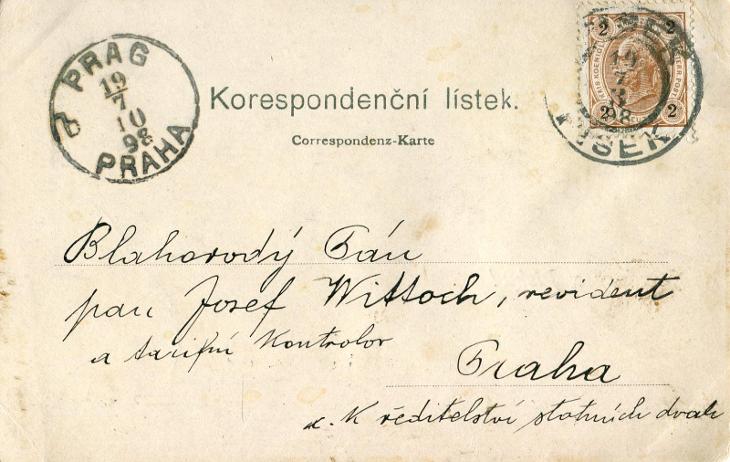 PRAG
19
7
10
98
PRAHA
PISEK
19
7
98
PISEK
2 2
2 2
Korespondenční lístek.
Correspondenz-Karte
Blahorodý Pán
pan Josef Wittoch, revident
a tarifní Kontrolor
Praha
c. K ředitelství státních drah